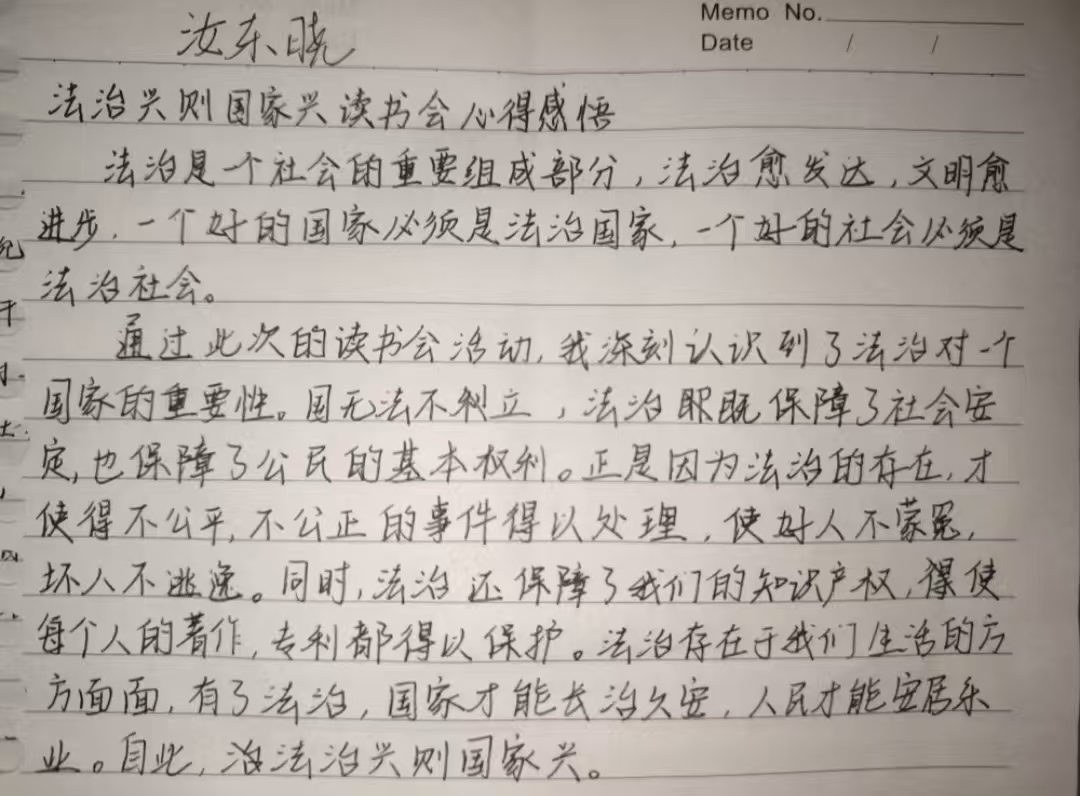 Memo No.
Date / /
汝东晓
法治兴则国家兴读书会心得感悟
法治是个社会的重要组成部分，法治愈发达，文明愈
进步，一个好的国家必须是法治国家，一个好的社会必须是
法治社会。
通过此次的读书会活动，我深刻认识到了法治对一个
国家的重要性。国无法不立，法治既保障了社会安
定，也保障了公民的基本权利。正是因为法治的存在，才
使得不公平，不公正的事件得以处理，使好人不蒙冤，
坏人不逃逸。同时，法治还保障了我们的知识产权，得使
每个人的著作，专利都得以保护。法治存在于我们生活的方
方面面，有了法治，国家才能长治久安，人民才能安居乐
业。自此，法治兴则国家兴。